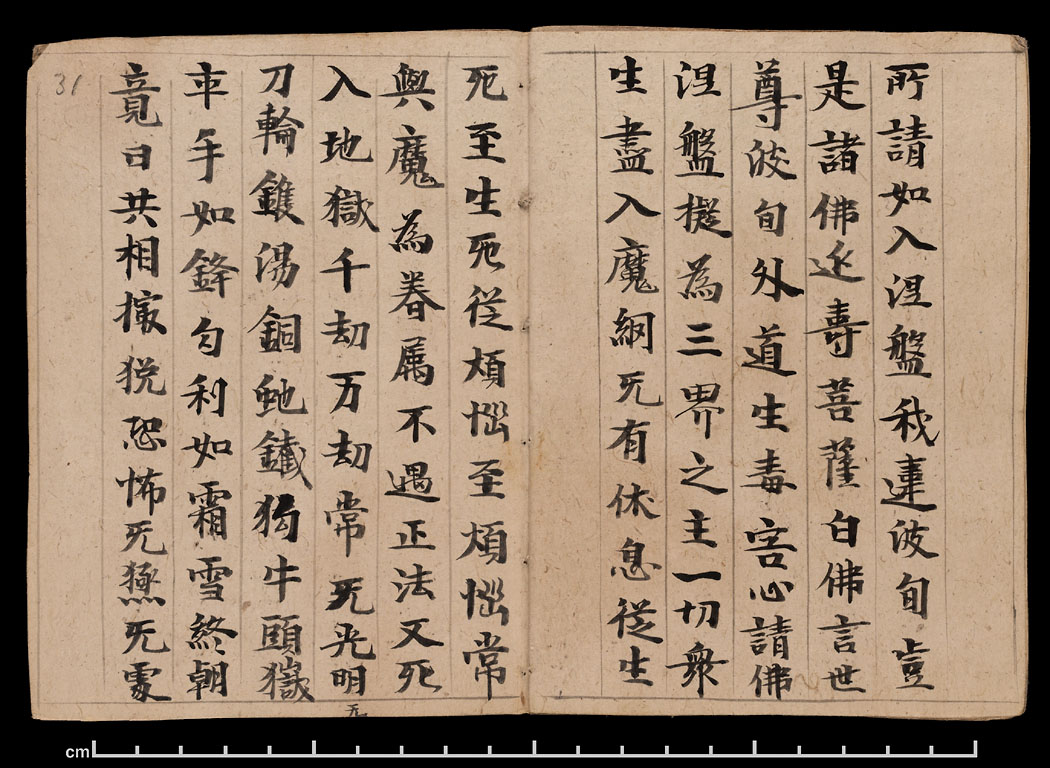 所請如入涅盤我違波旬豈
是諸佛延壽菩薩白佛言世
尊波旬外道生毒害心請佛
涅盤擬為三界之主一切衆
生盡入魔網无有休息從生
31
死至生死從煩惱至煩惱常
與魔為眷属不遇正法又死
入地獄千劫万劫常无光明
刀輪鑊湯銅虵鐵狗牛頭獄
卒手如鋒勾利如霜雪終朝
竟日共相恐怖无无處
无
cm